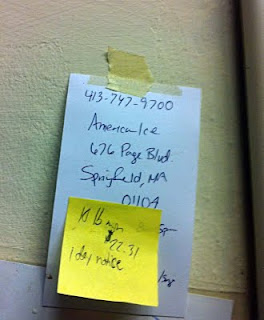 413-747-9700
American Ice
676 Page Blvd.
Springfield, MA
01104
5pm
22.31
1 day notice